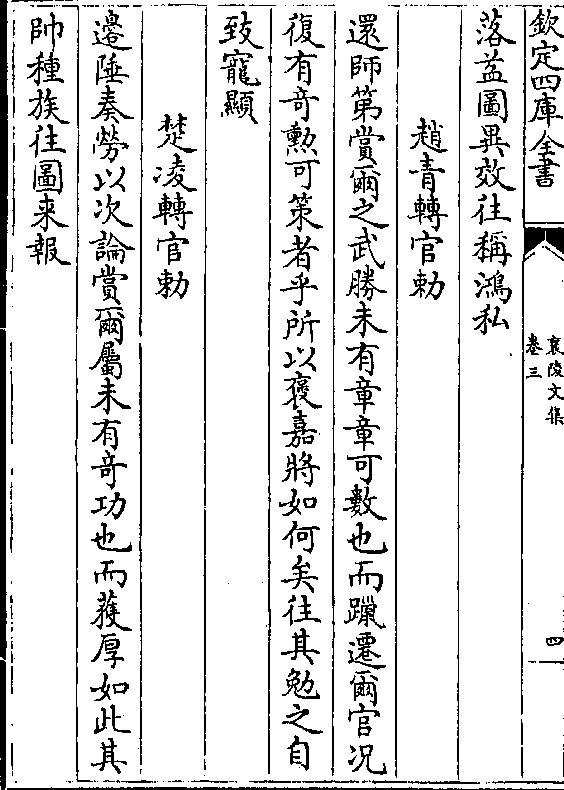 欽定四庫全書
襄陵文集
卷三
四
落益圖異效往稱鴻私
趙青轉官勅
還師第賞爾之武勝未有章章可數也而躐遷爾官况
復有竒勲可策者乎所以襃嘉將如何矣往其勉之自
致寵顯
楚凌轉官勅
邉陲奏勞以次論賞爾屬未有竒功也而蒦厚如此其
帥種族往圖来報